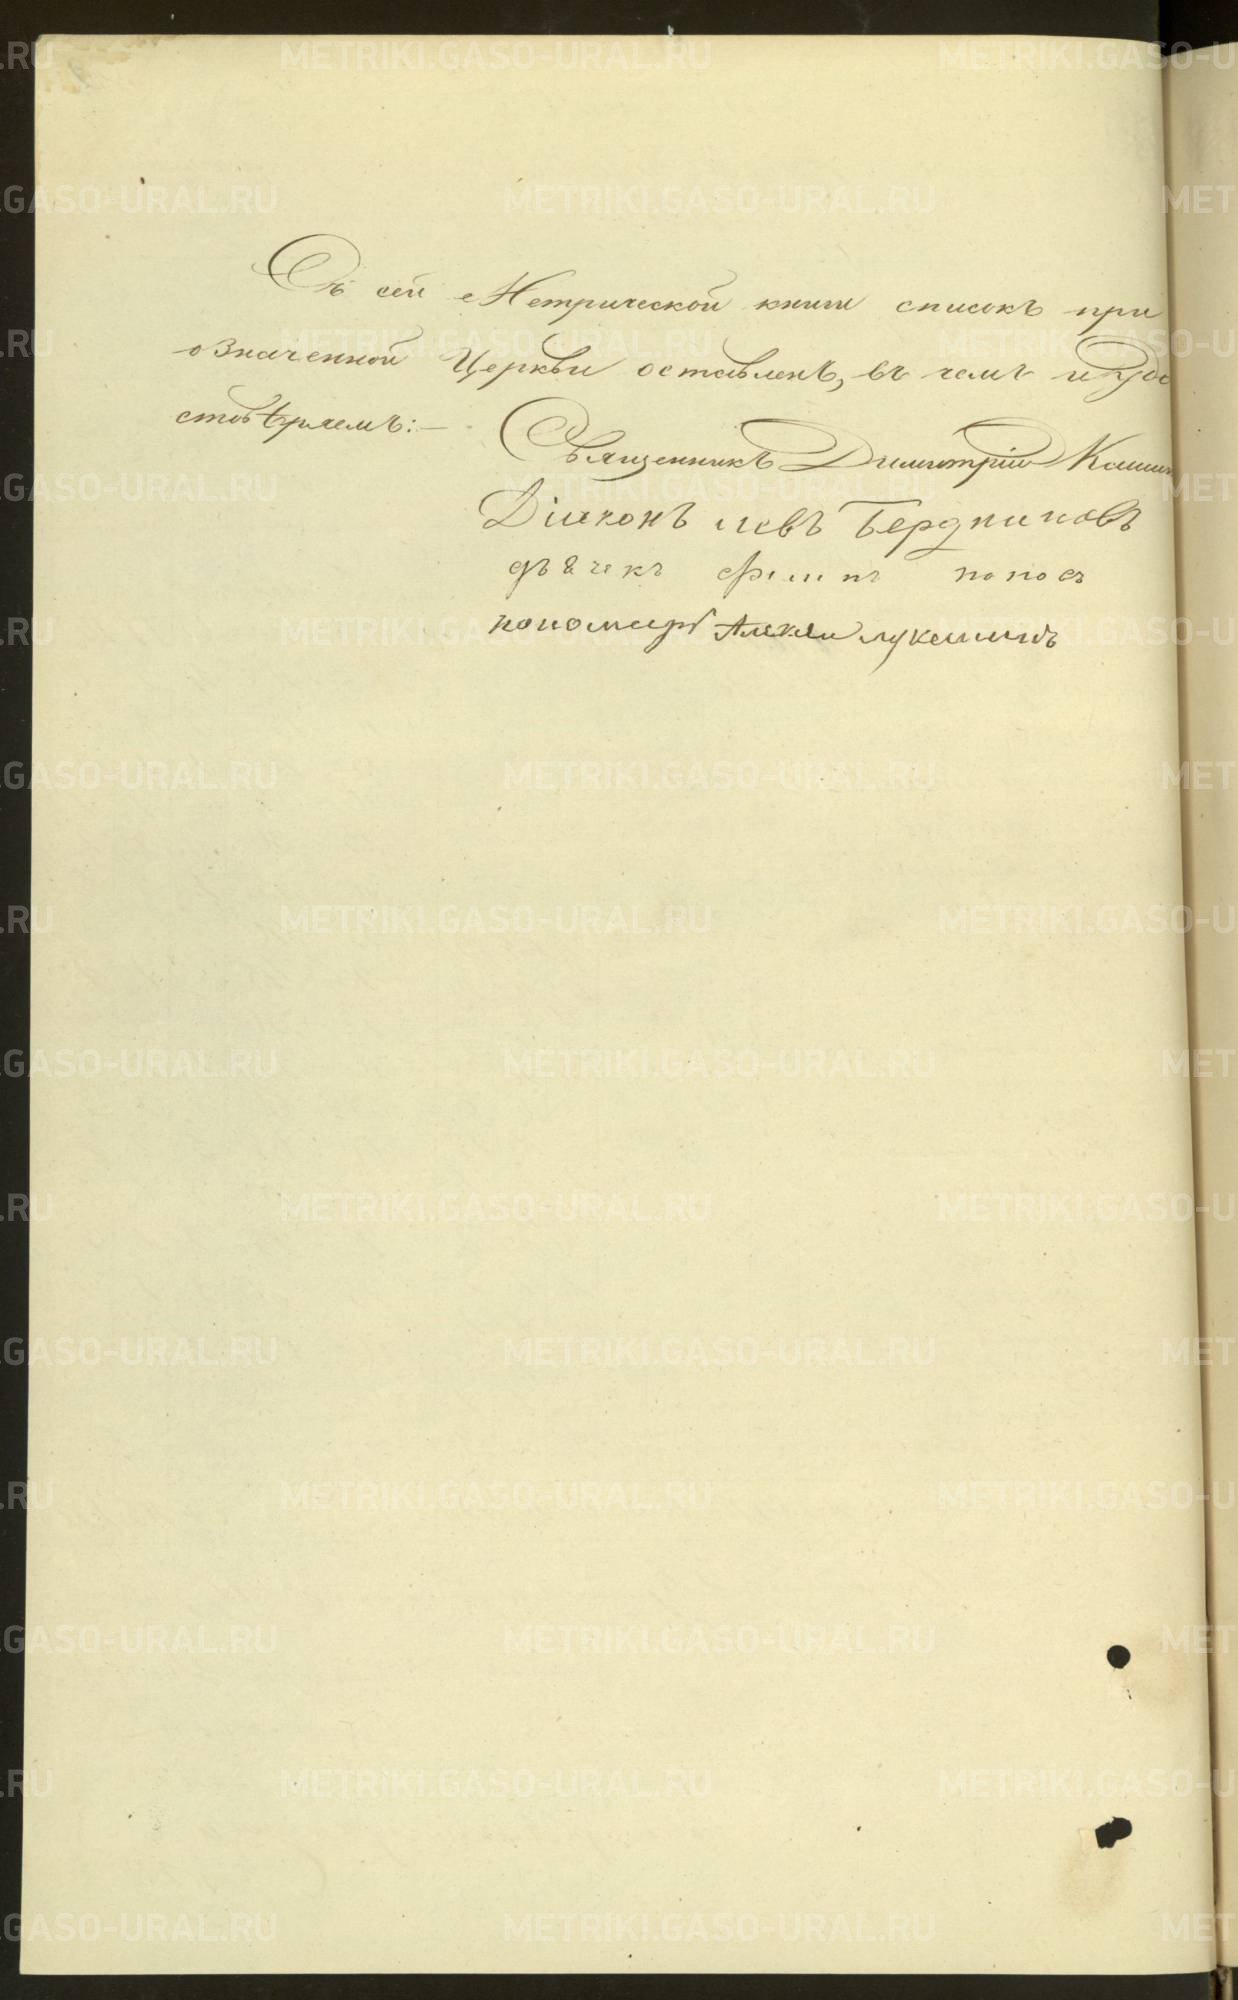 Съ сей Метрической книги списокъ при
означенной Церкви оставленъ, въ чемъ и удо
стовѣряемъ:—
Священникъ Димитрій
Діаконъ Левъ Бердниковъ
дьячекъ Филипъ Поповъ
пономарь Алексѣй Лукашинъ
METRIKI.GASO-URAL.RU